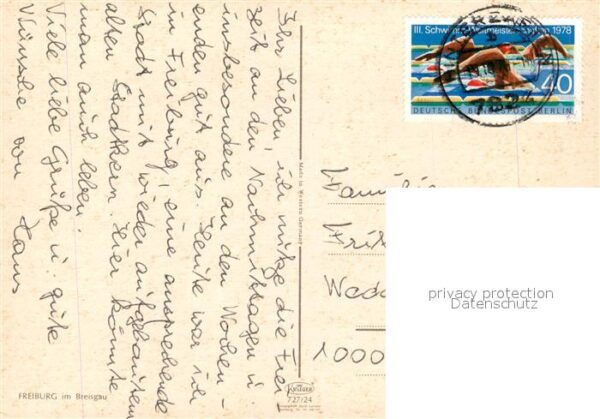 Ihr Lieben, ich nütze die Frei
zeit an den Nachmittagen u.
insbesondere an den Wochen-
enden gut aus. Heute war ich
in Freiburg, eine ansprechende
Stadt mit wieder aufgebautem
alten Stadtkern. Hier könnte
man auch leben.
Viele liebe Grüße u. gute
Wünsche von Hans
FREIBURG im Breisgau
Made in Western Germany
727/24
III. Schwimm-Weltmeisterschaften 1978
40
DEUTSCHE BUNDESPOST BERLIN
Familie
1000
privacy protection
Datenschutz